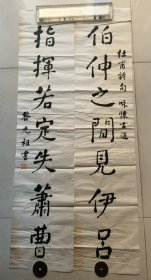 伯仲之間見伊呂
杜甫詩句 咏懷古迹
指揮若定失蕭曹